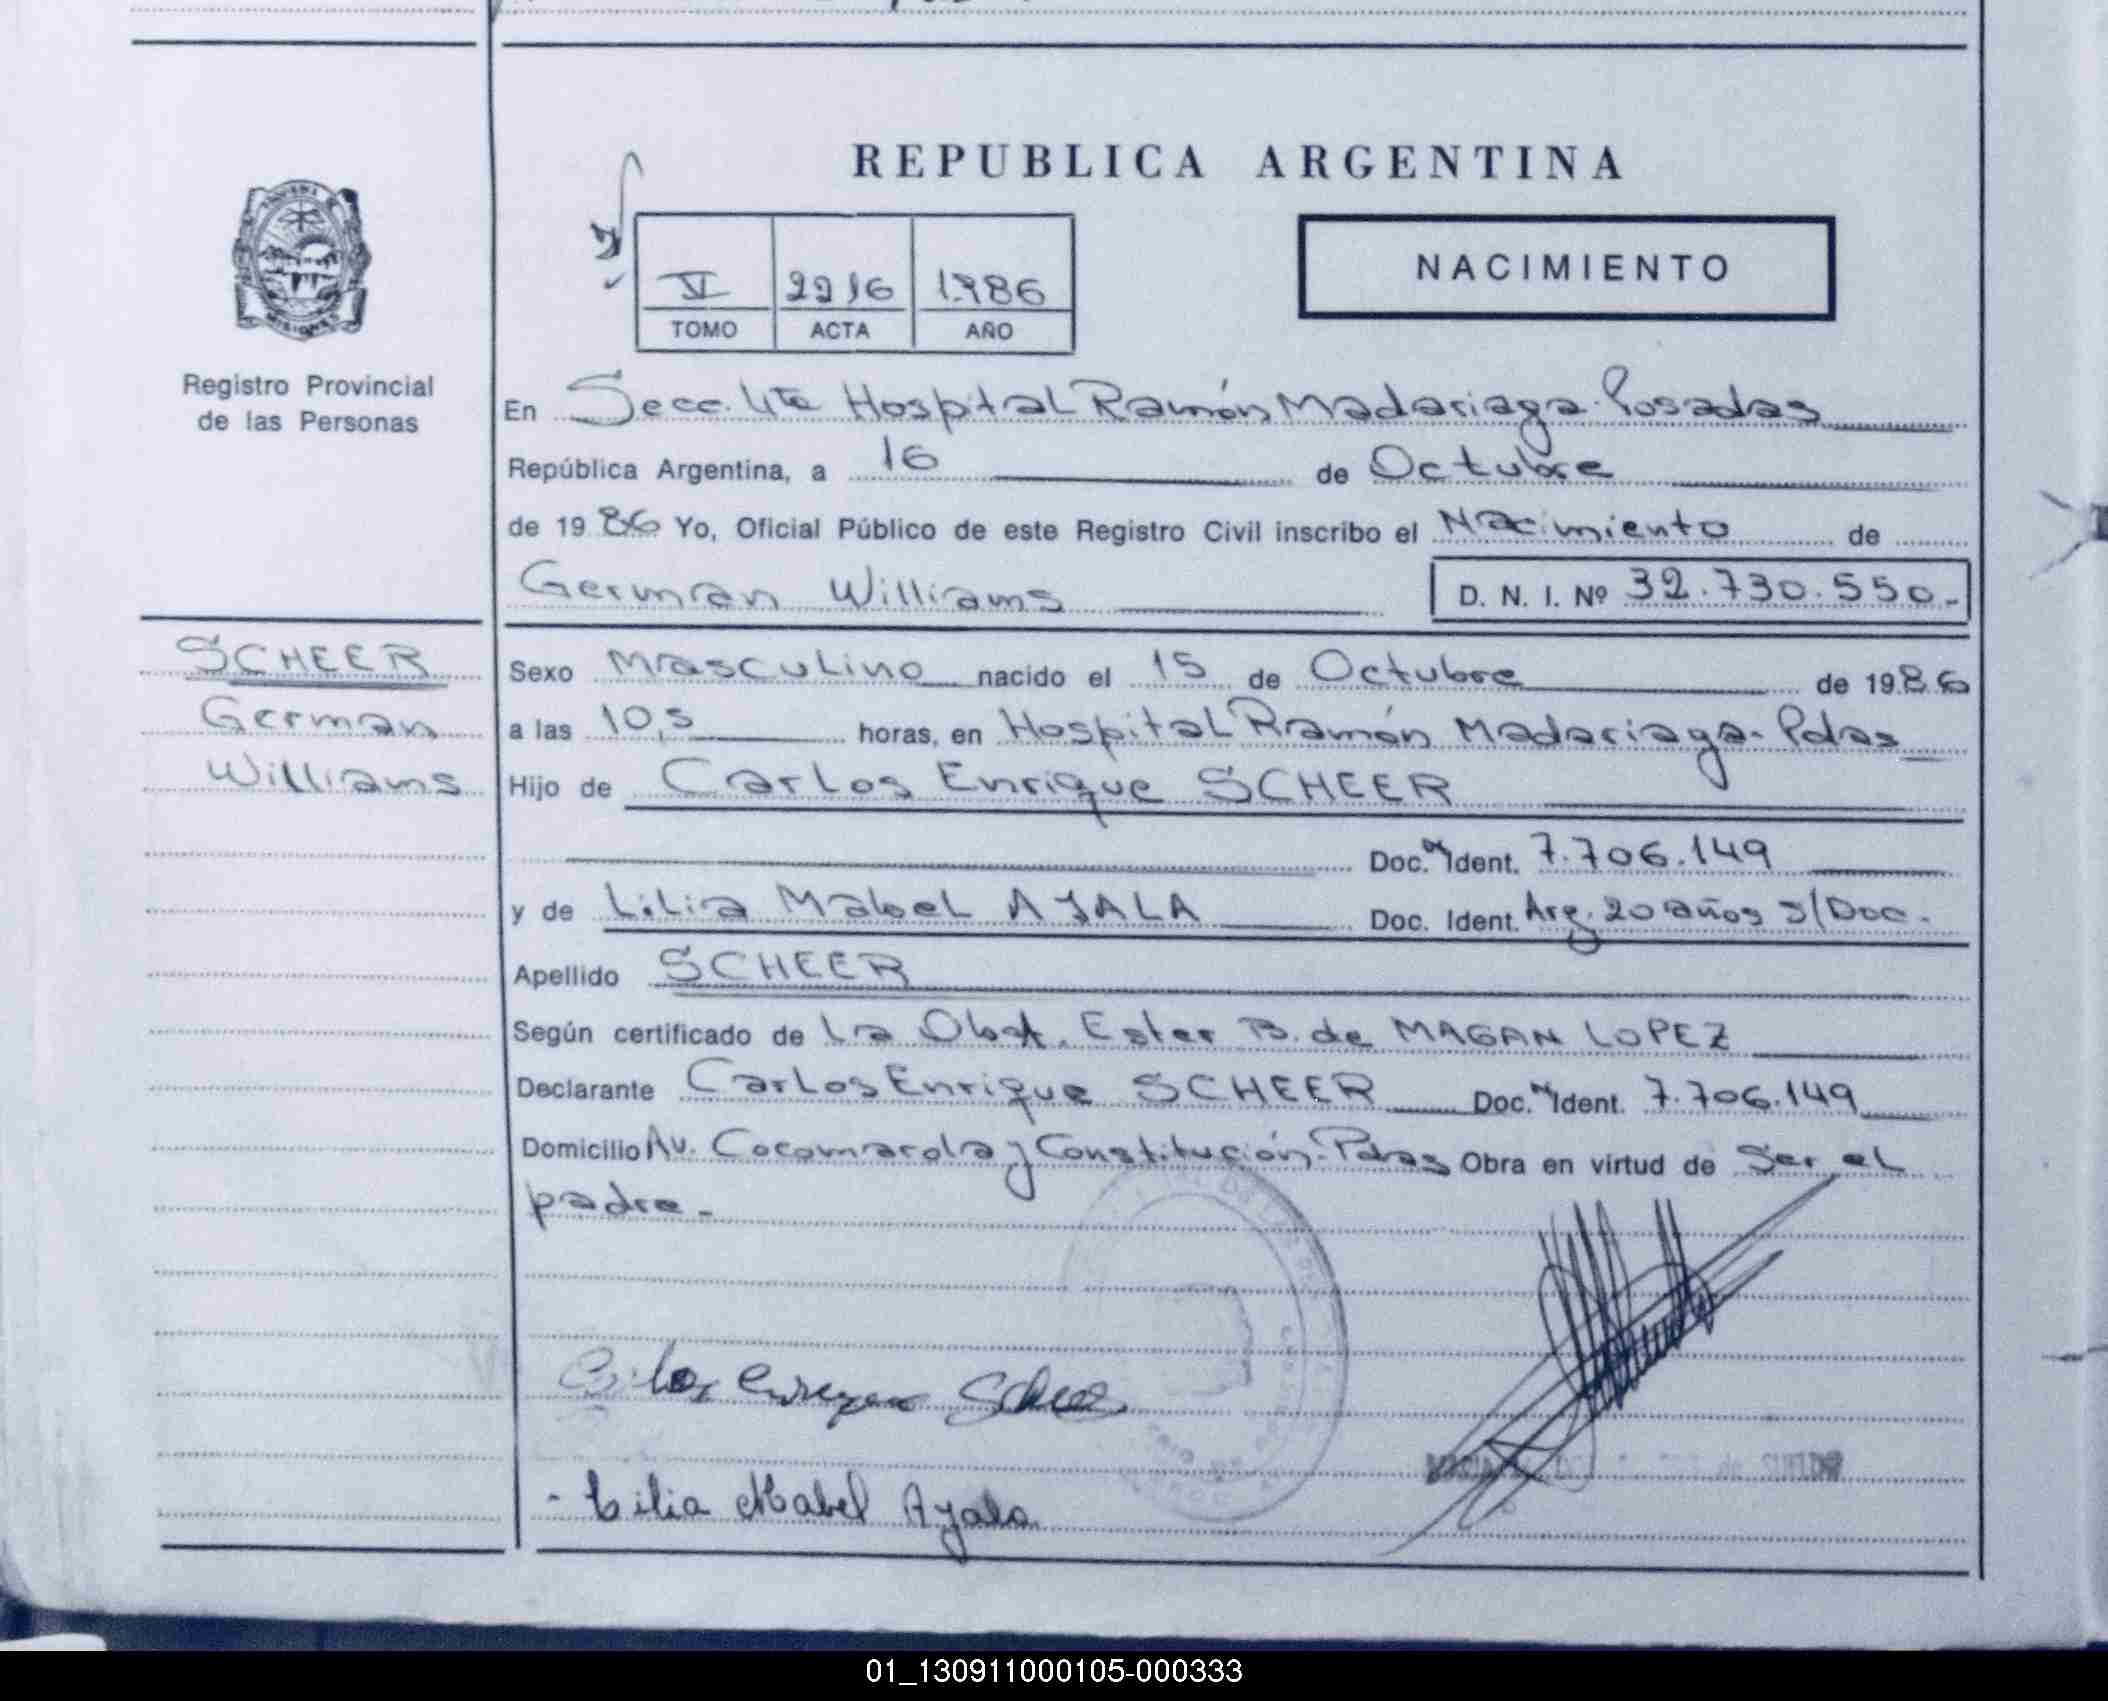 REPUBLICA ARGENTINA
NACIMIENTO
VI 2216 1986
TOMO ACTA AÑO
MISIONES
Registro Provincial
de las Personas
En Secc. 4ta Hospital Ramón Madariaga. Posadas
República Argentina, a 16 de Octubre
de 1986 Yo, Oficial Público de este Registro Civil inscribo el Nacimiento de
German Williams D. N. I. Nº 32.730.550.-
SCHEER
German
Williams
Sexo Masculino nacido el 15 de Octubre de 1986
a las 10,5 horas, en Hospital Ramón Madariaga. Pdas
Hijo de Carlos Enrique SCHEER
Doc. Ident. 7.706.149
y de Lilia Mabel AYALA Doc. Ident. Arg. 20 años s/Doc.
Apellido SCHEER
Según certificado de La Obst. Ester B. de MAGAN LOPEZ
Declarante Carlos Enrique SCHEER Doc. Ident. 7.706.149
Domicilio Av. Cocomarola y Constitución. Pdas Obra en virtud de Ser el
padre.-
Carlos Enrique Scheer
- Lilia Mabel Ayala
01_130911000105-000333